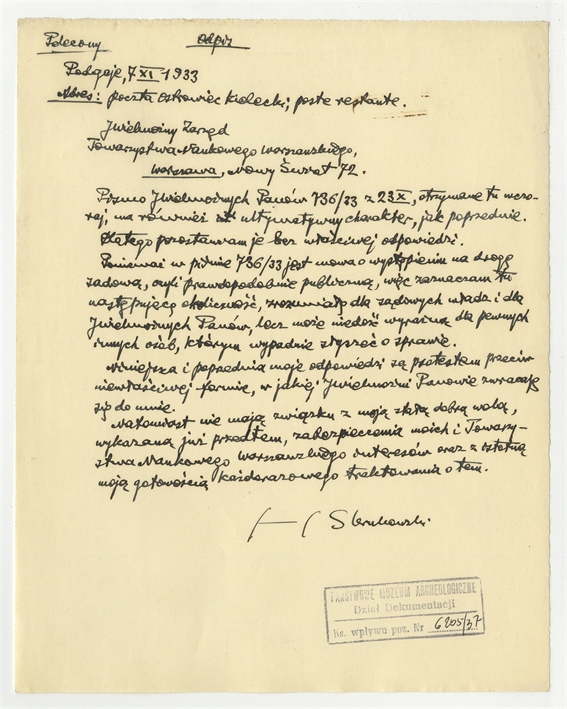 Polecony
Odpis
Podgaje, 7 XI 1933
Adres: poczta Ostrowiec Kielecki, poste restante.
JWielmożny Zarząd
Towarzystwa Naukowego Warszawskiego,
Warszawa, Nowy Świat 72.
Pismo JWielmożnych Panów 736/33 z 23 X, otrzymane tu wczo-
raj, ma również ultymatywny charakter, jak poprzednie.
Dlatego pozostawiam je bez właściwej odpowiedzi.
Ponieważ w piśmie 736/33 jest mowa o wystąpieniu na drogę
sądową, czyli prawdopodobnie publiczną, więc zaznaczam tu
następującą okoliczność, zrozumiałą dla sądowych władz i dla
JWielmożnych Panów, lecz może niedość wyraźną dla pewnych
innych osób, którym wypadnie słyszeć o sprawie.
Niniejsza i poprzednia moje odpowiedzi są protestem przeciw
niewłaściwej formie, w jakiej JWielmożni Panowie zwracają
się do mnie.
Natomiast nie mają związku z moją stałą dobrą wolą,
wykazaną już przedtem, zabezpieczenia moich i Towarzy-
stwa Naukowego Warszawskiego interesów oraz z
moją gotowością każdorazowego traktowania o tem.
PAŃSTWOWE MUZEUM ARCHEOLOGICZNE
Dział Dokumentacji
Ks. wpływu poz. Nr 6205/37